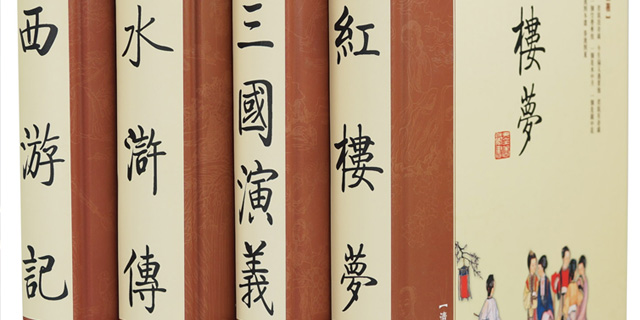 西游記
水滸傳
三國演義
紅樓夢
【清
樓夢